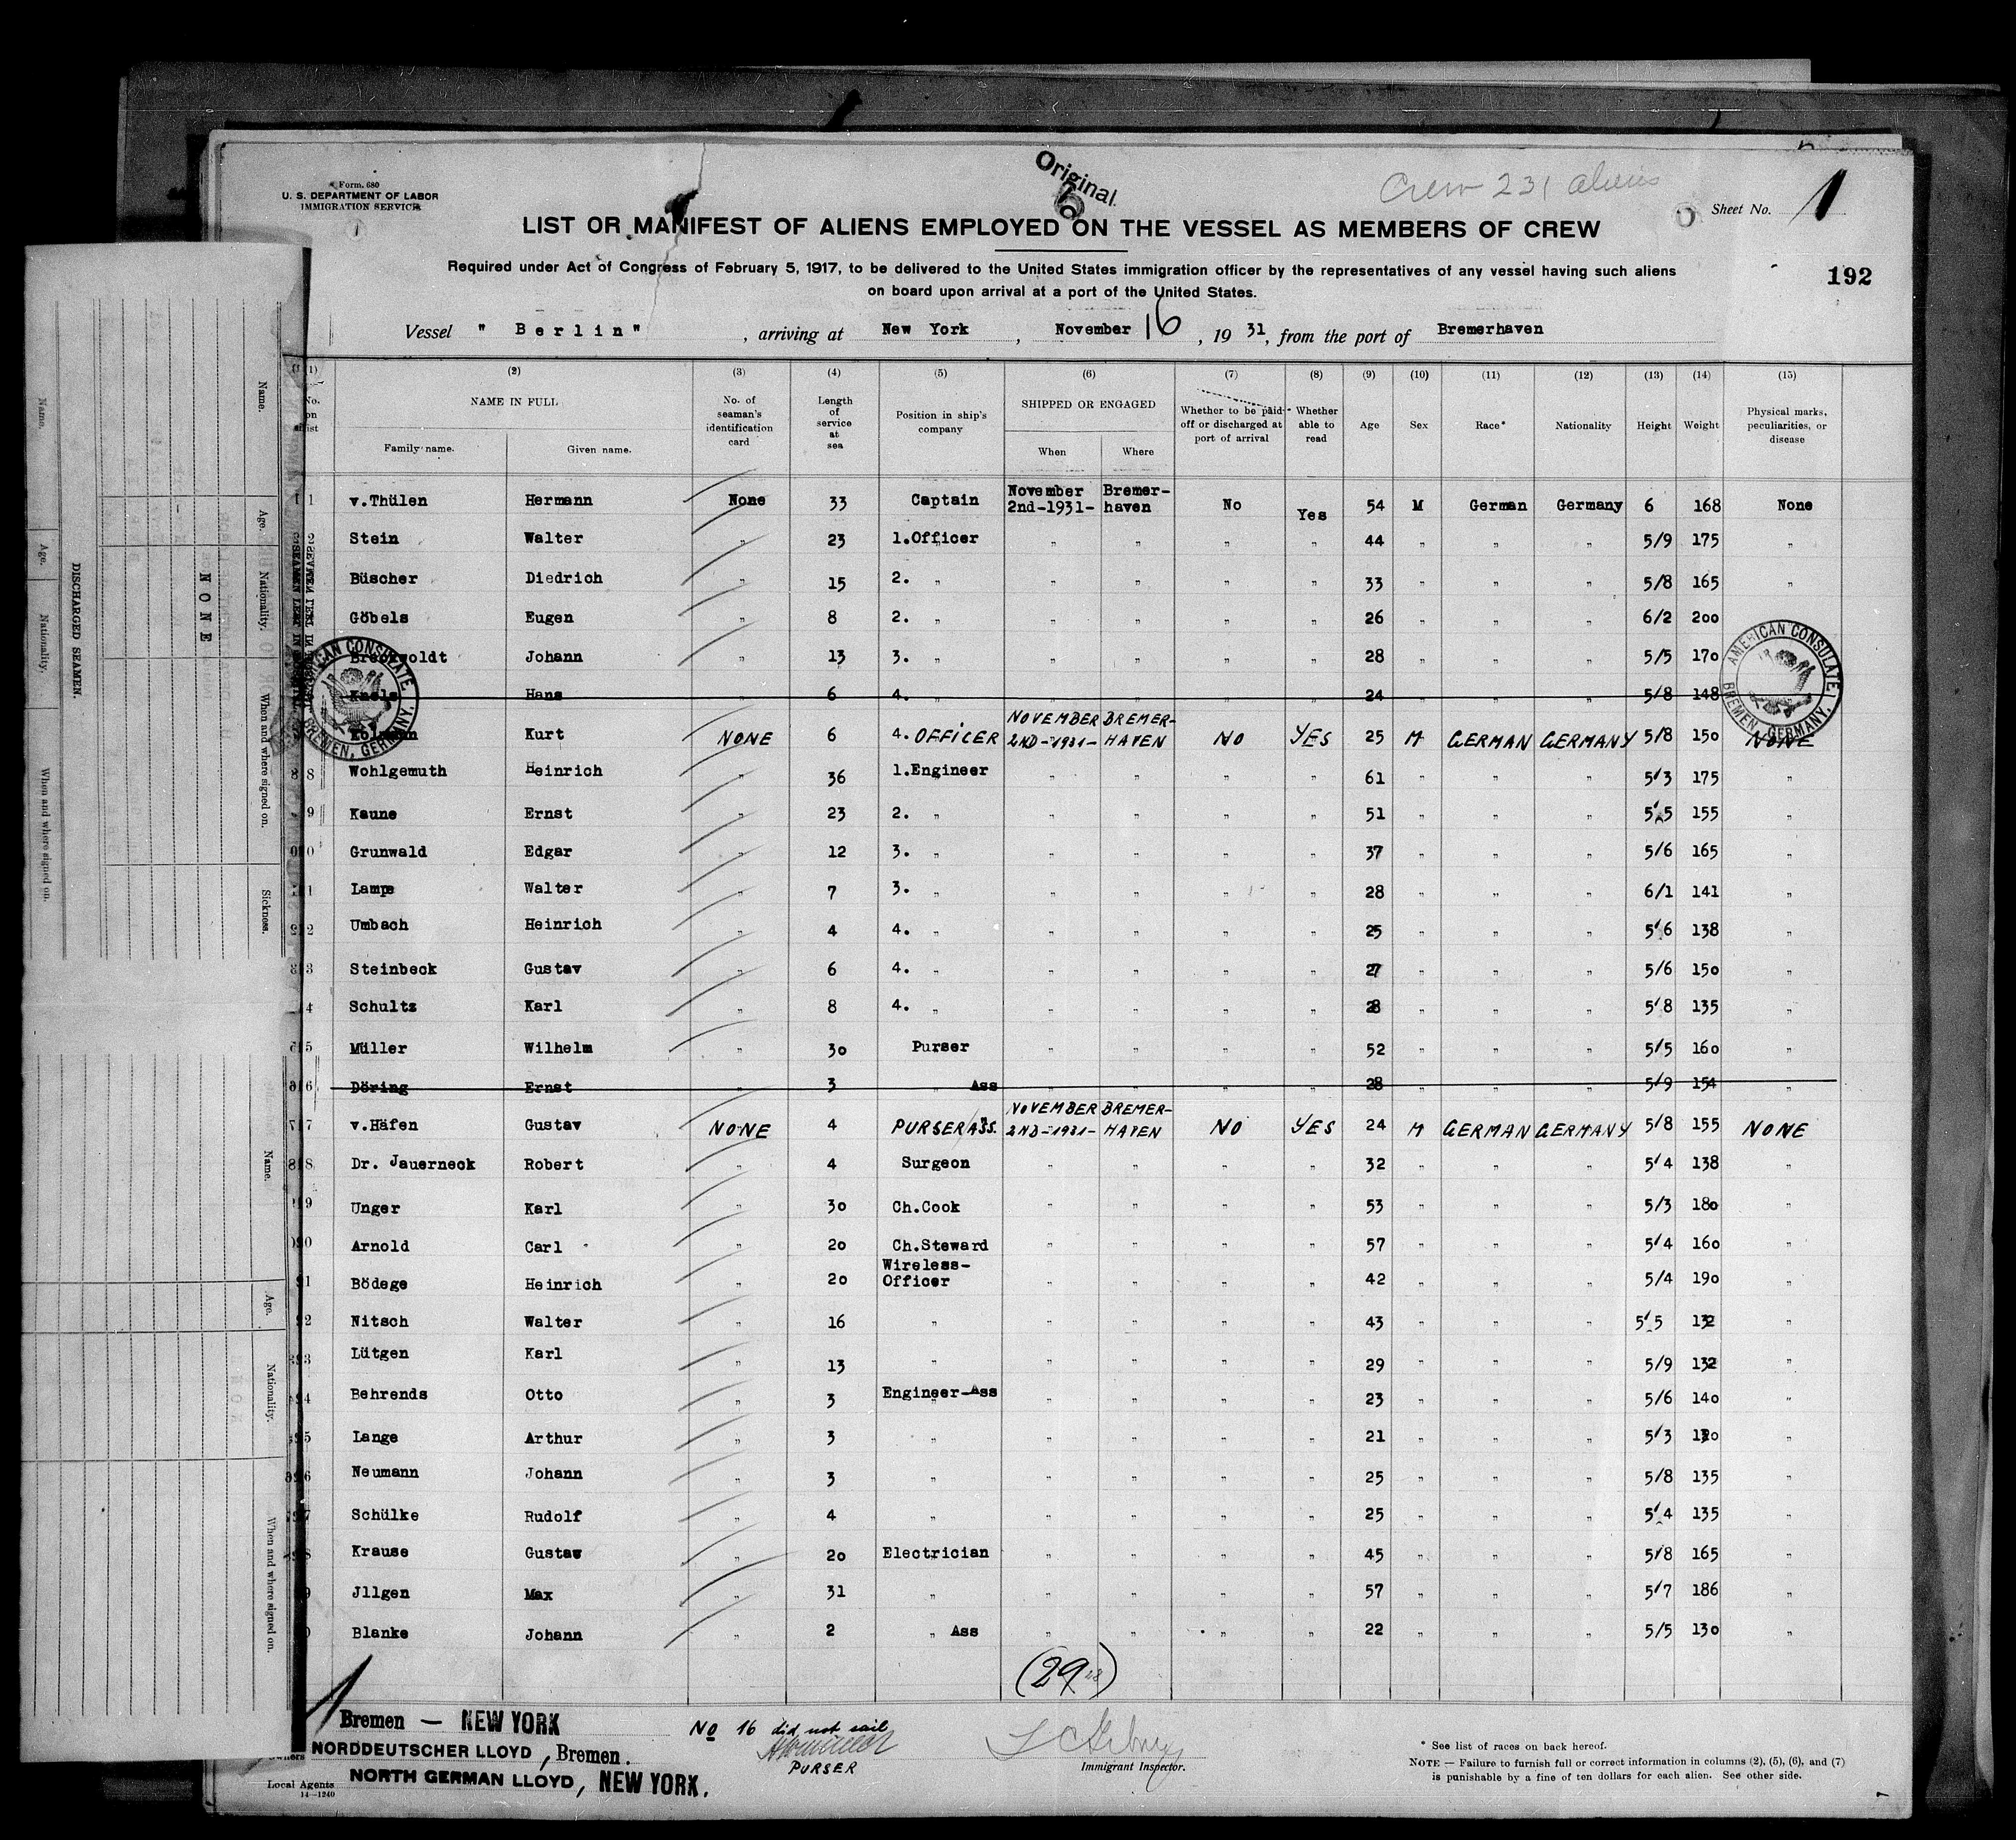 Form 680
U. S. DEPARTMENT OF LABOR
IMMIGRATION SERVICE
Original
Crew 231 aliens
Sheet No. 1
LIST OR MANIFEST OF ALIENS EMPLOYED ON THE VESSEL AS MEMBERS OF CREW
Required under Act of Congress of February 5, 1917, to be delivered to the United States immigration officer by the representatives of any vessel having such aliens
on board upon arrival at a port of the United States.
192
Vessel "Berlin", arriving at New York, November 16, 1931, from the port of Bremerhaven
(1) (2) (3) (4) (5) (6) (7) (8) (9) (10) (11) (12) (13) (14) (15)
No. on list NAME IN FULL Family name. Given name. No. of seaman's identification card Length of service at sea Position in ship's company SHIPPED OR ENGAGED When Where Whether to be paid off or discharged at port of arrival Whether able to read Age Sex Race* Nationality Height Weight Physical marks, peculiarities, or disease
1 v.Thülen Hermann None 33 Captain November 2nd-1931- Bremer-haven No Yes 54 M German Germany 6 168 None
2 Stein Walter " 23 1.Officer " " " " 44 " " " 5/9 175 "
Büscher Diedrich " 15 2. " " " " " 33 " " " 5/8 165 "
Göbels Eugen " 8 2. " " " " " 26 " " " 6/2 200
Johann " 13 3. " " " " " 28 " " " 5/5 170
Hans " 6 4. " " " " " 24 " " " 5/8 148
Kurt NONE 6 4. OFFICER NOVEMBER 2ND-1931- BREMER-HAVEN NO YES 25 M GERMAN GERMANY 5/8 150 NONE
8 Wohlgemuth Heinrich " 36 1.Engineer " " " " 61 " " " 5/3 175 "
9 Kaune Ernst " 23 2. " " " " " 51 " " " 5/5 155 "
0 Grunwald Edgar " 12 3. " " " " " 37 " " " 5/6 165 "
1 Lampe Walter " 7 3. " " " " " 28 " " " 6/1 141 "
2 Umbach Heinrich " 4 4. " " " " " 25 " " " 5/6 138 "
3 Steinbeck Gustav " 6 4. " " " " " 27 " " " 5/6 150 "
4 Schultz Karl " 8 4. " " " " " 28 " " " 5/8 135 "
5 Müller Wilhelm " 30 Purser " " " " 52 " " " 5/5 160 "
6 Döring Ernst " 3 " Ass " " " " 28 " " " 5/9 154 "
7 v.Häfen Gustav NONE 4 PURSER ASS. NOVEMBER 2ND-1931- BREMER-HAVEN NO YES 24 M GERMAN GERMANY 5/8 155 NONE
8 Dr. Jauerneck Robert " 4 Surgeon " " " " 32 " " " 5/4 138 "
9 Unger Karl " 30 Ch.Cook " " " " 53 " " " 5/3 180 "
0 Arnold Carl " 20 Ch.Steward " " " " 57 " " " 5/4 160 "
1 Bödege Heinrich " 20 Wireless-Officer " " " " 42 " " " 5/4 190 "
2 Nitsch Walter " 16 " " " " " 43 " " " 5/5 132 "
3 Lütgen Karl " 13 " " " " " 29 " " " 5/9 132 "
4 Behrends Otto " 3 Engineer-Ass " " " " 23 " " " 5/6 140 "
5 Lange Arthur " 3 " " " " " 21 " " " 5/3 "
6 Neumann Johann " 3 " " " " " 25 " " " 5/8 135 "
7 Schülke Rudolf " 4 " " " " " 25 " " " 5/4 135 "
8 Krause Gustav " 20 Electrician " " " " 45 " " " 5/8 165 "
9 Jllgen Max " 31 " " " " " 57 " " " 5/7 186 "
0 Blanke Johann " 2 " Ass " " " " 22 " " " 5/5 130 "
AMERICAN CONSULATE, BREMEN, GERMANY.
AMERICAN CONSULATE, BREMEN, GERMANY.
(29)
Bremen — NEW YORK
No 16 did not sail
PURSER
Immigrant Inspector.
Owners NORDDEUTSCHER LLOYD, Bremen.
Local Agents NORTH GERMAN LLOYD, NEW YORK.
14—1240
* See list of races on back hereof.
NOTE — Failure to furnish full or correct information in columns (2), (5), (6), and (7)
is punishable by a fine of ten dollars for each alien. See other side.
DISCHARGED SEAMEN.
Name. Age. Nationality. When and where signed on.
Name. Age. Nationality. When and where signed on. Sickness.
NONE
Name. Age. Nationality. When and where signed on.